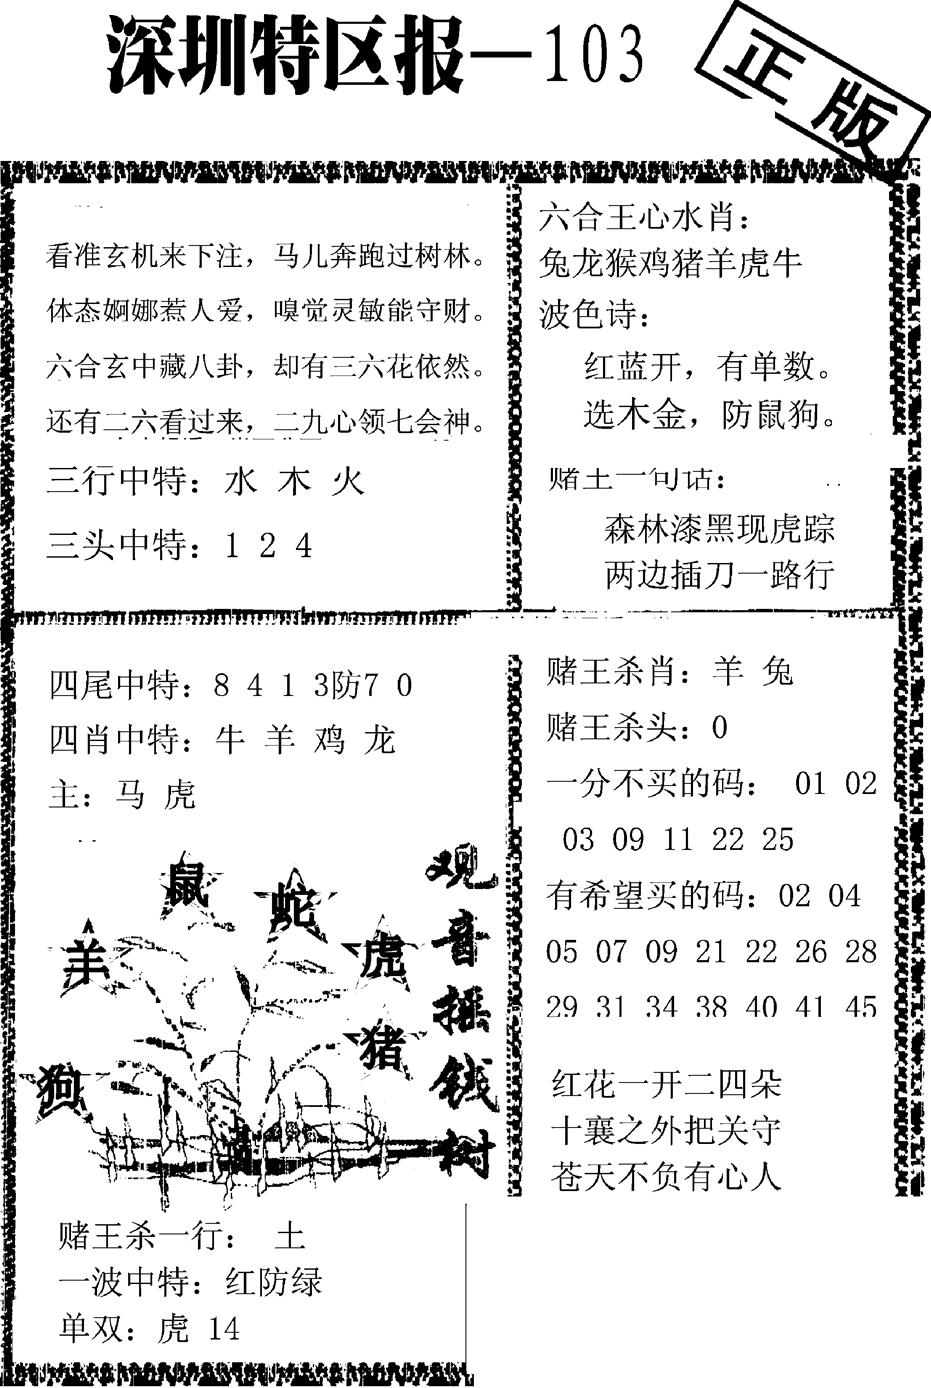 深圳特区报—103
正版
看准玄机来下注，马儿奔跑过树林。
体态婀娜惹人爱，嗅觉灵敏能守财。
六合玄中藏八卦，却有三六花依然。
还有二六看过来，二九心领七会神。
三行中特：水 木 火
三头中特：1 2 4
六合王心水肖：
兔龙猴鸡猪羊虎牛
波色诗：
红蓝开，有单数。
选木金，防鼠狗。
赌王一句话：
森林漆黑现虎踪
两边插刀一路行
四尾中特：8 4 1 3防7 0
四肖中特：牛 羊 鸡 龙
主：马 虎
鼠
蛇
羊
虎
猪
狗
观音摇钱树
赌王杀一行： 土
一波中特：红防绿
单双：虎 14
赌王杀肖：羊 兔
赌王杀头：0
一分不买的码： 01 02
03 09 11 22 25
有希望买的码：02 04
05 07 09 21 22 26 28
29 31 34 38 40 41 45
红花一开二四朵
十襄之外把关守
苍天不负有心人